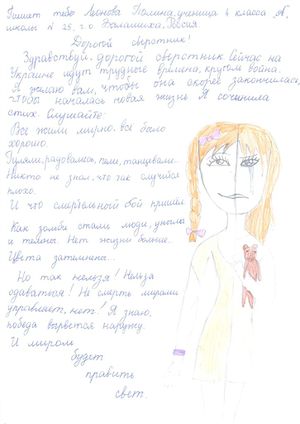 Пишет тебе Леонова Полина, ученица 4 класса "А",
школы № 25, г.о. Балашиха, Россия.
Дорогой сверстник!
Здравствуй, дорогой сверстник! Сейчас на
Украине идут трудные времена, кругом война.
Я желаю вам, чтобы она скорее закончилась,
чтобы началась новая жизнь. Я сочинила
стих. Слушайте:
Все жили мирно, всё было
хорошо.
Гуляли, радовались, пели, танцевали...
Никто не знал, что так случится
плохо.
И что смертельный бой пришёл
Как зомби стали люди, унылы
и темны. Нет жизни больше.
Цвета затмлены...
Но так нельзя! Нельзя
сдаваться! Не смерть мирами
управляет, нет! Я знаю,
победа вырвется наружу.
И миром
будет
править
свет.